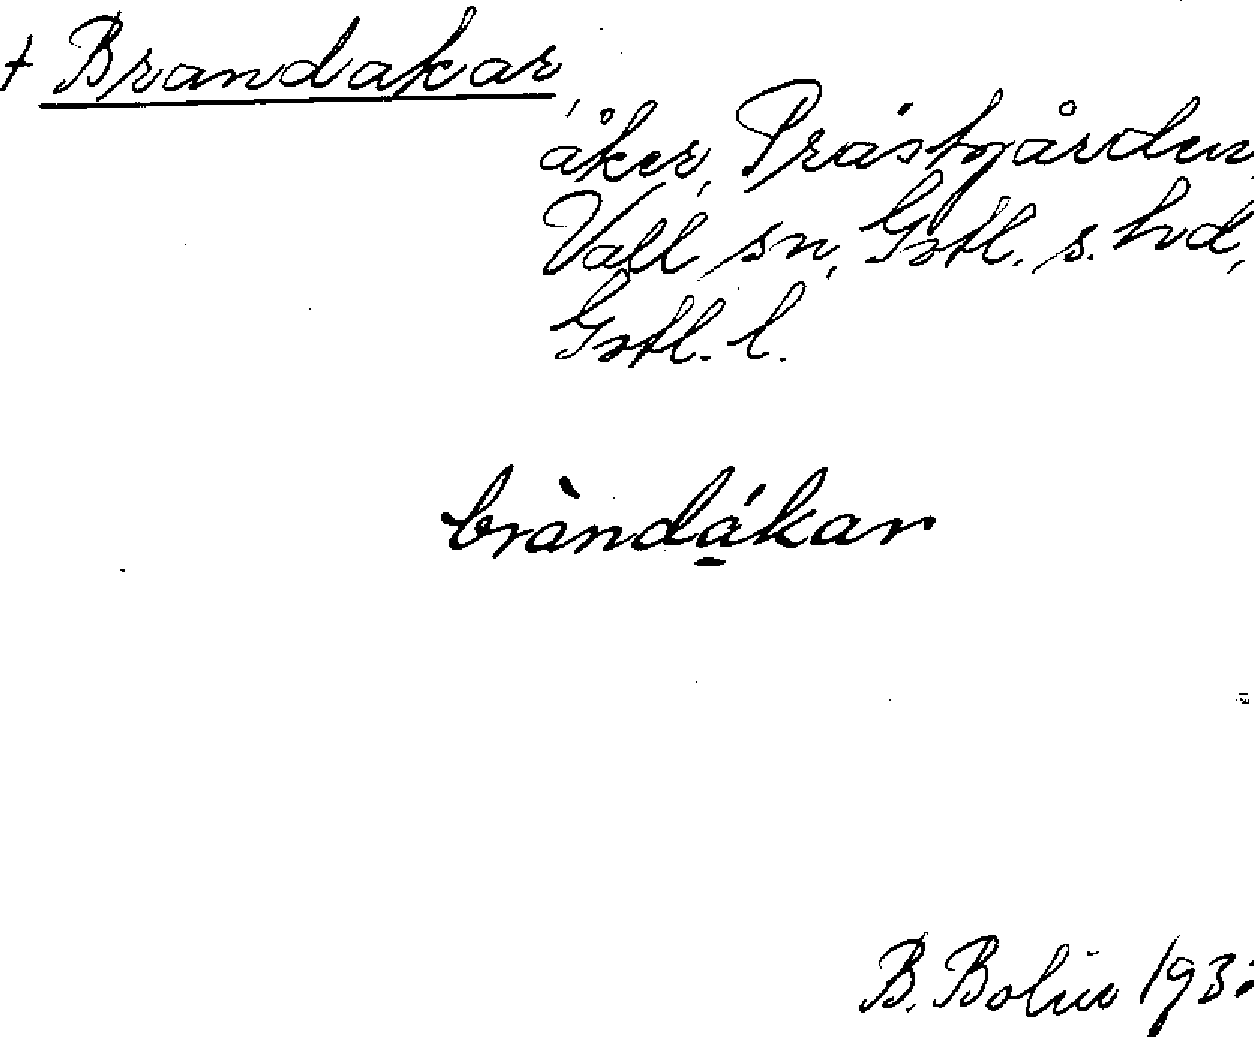 † Brandakar
åker, Prästgården,
Vall sn, Gotl. s. hd,
Gotl. l.
bràndákar
B. Bolin